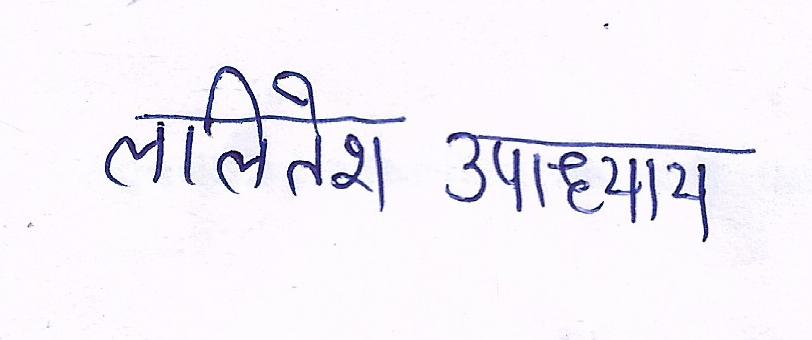 ललितेश उपाध्याय